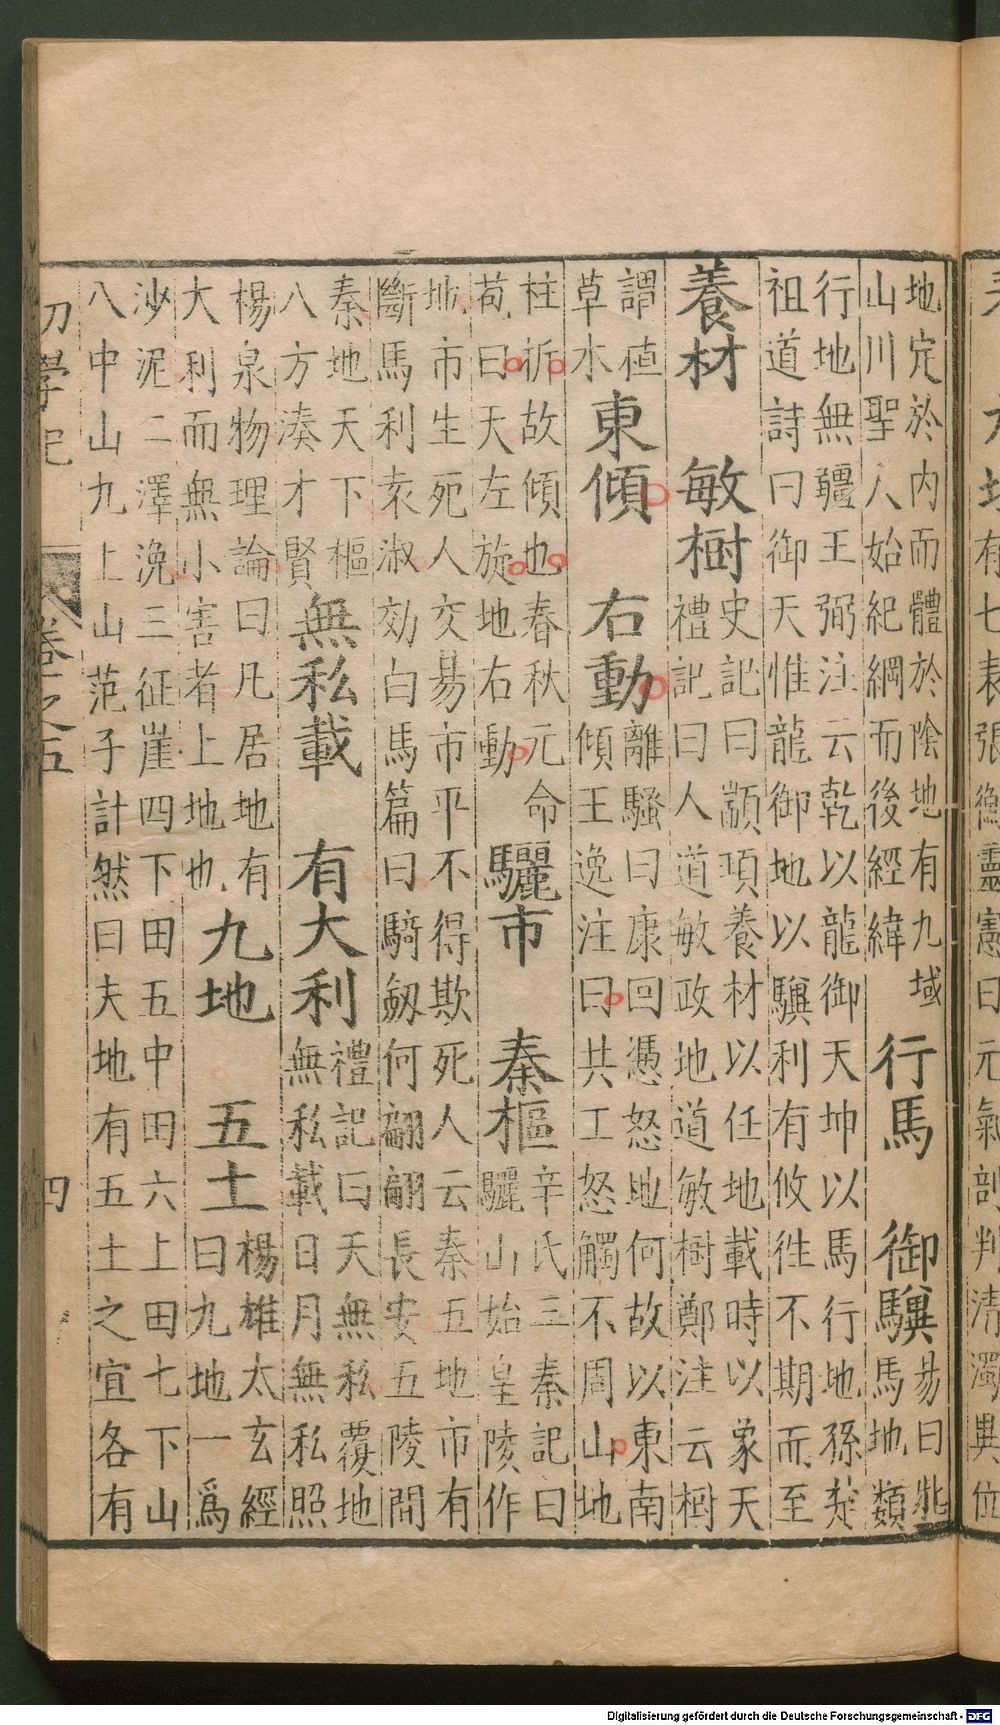 有七表張衡靈憲曰元氣剖判清濁異位
地定於内而體於陰地有九域
山川聖人始紀綱而後經緯
行馬　御驥
易曰牝
馬地類
行地無疆王弼注云乾以龍御天坤以馬行地孫楚
祖道詩曰御天惟龍御地以驥利有攸往不期而至
養材　敏樹
史記曰顓頊養材以任地載時以象天
禮記曰人道敏政地道敏樹鄭注云樹
謂植
草水
東傾　右動
離騷曰康回憑怒地何故以東南
傾王逸注曰共工怒觸不周山地
柱折故傾也春秋元命
苞曰天左旋地右動
驪市　秦樞
辛氏三秦記曰
驪山始皇陵作
地市生死人交易市平不得欺死人云秦五地市有
斷馬利袁淑効白馬篇曰騎劒何翩翩長安五陵間
秦地天下樞
八方湊才賢
無私載　有大利
禮記曰天無私覆地
無私載日月無私照
楊泉物理論曰凡居地有
大利而無小害者上地也
九地　五土
楊雄太玄經
曰九地一爲
沙泥二澤浼三征崖四下田五中田六上田七下山
八中山九上山范子計然曰夫地有五土之宜各有
初學記　卷之五　四
Digitalisierung gefördert durch die Deutsche Forschungsgemeinschaft - DFG